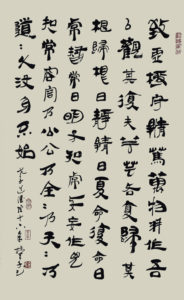 致虛極守靜篤萬物并作吾
以觀其復夫物芸芸各復歸其
根歸根曰靜靜曰復命復命曰
常知常曰明不知常妄作凶
知常容容乃公公乃全全乃天天乃
道道乃久沒身不殆
老子道德經十六章